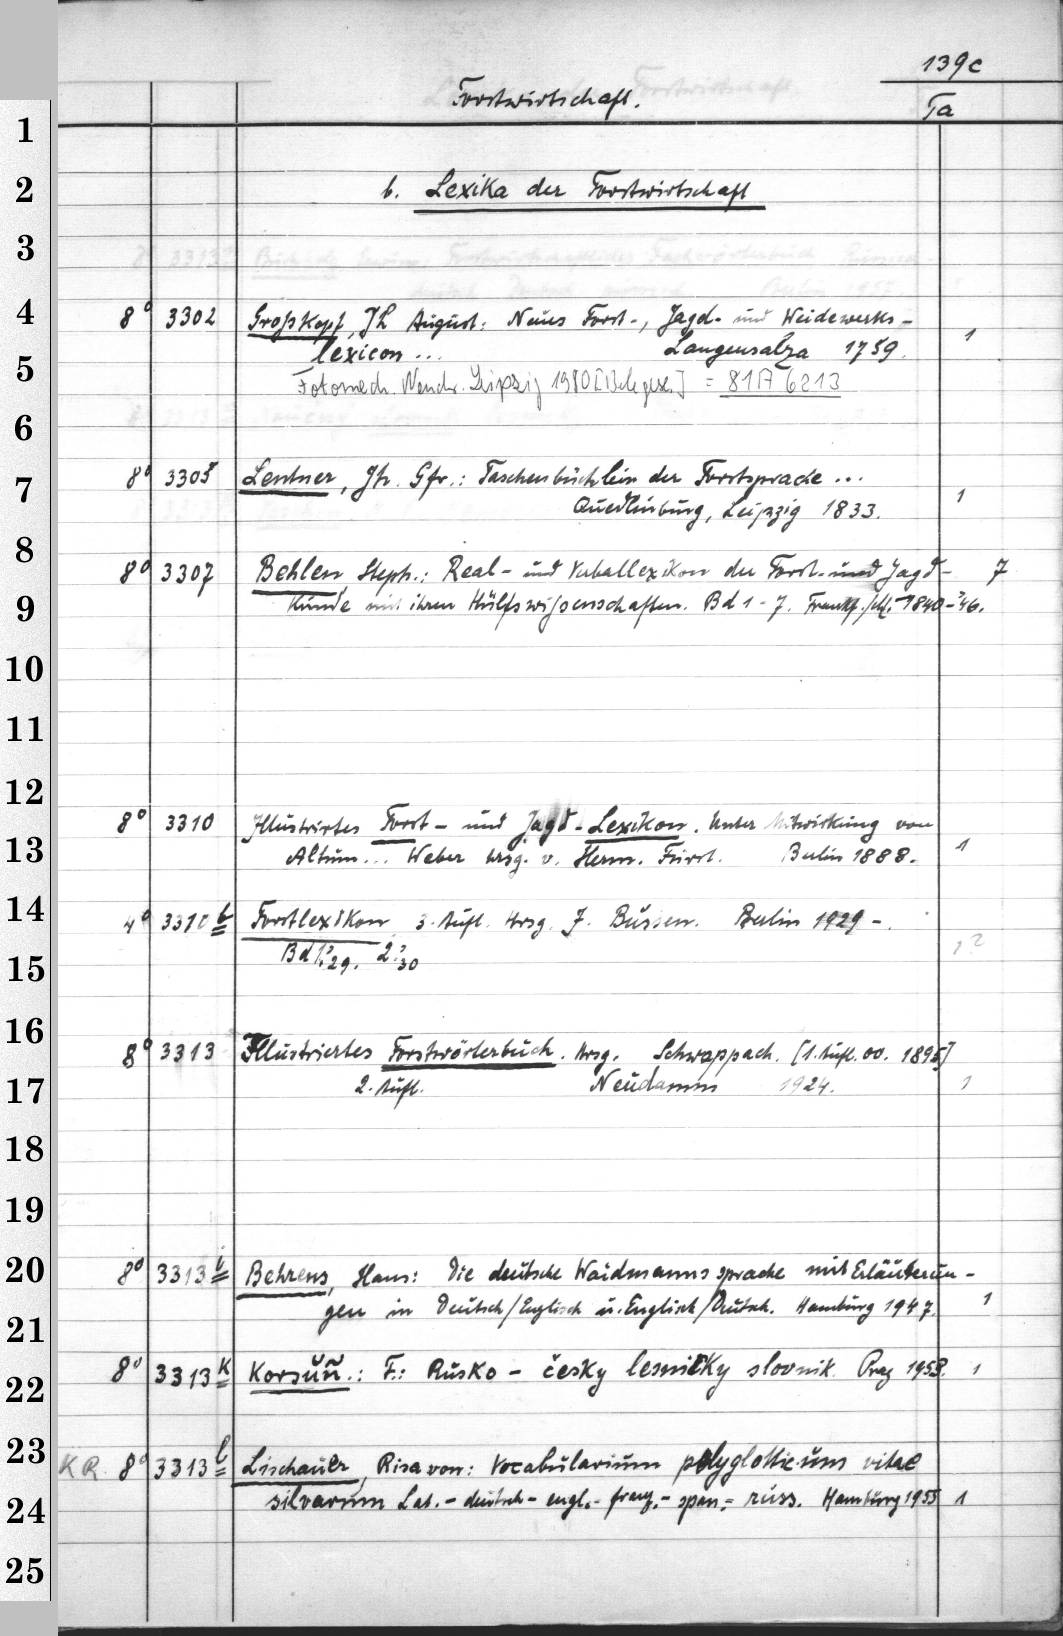 139c
Forstwirtschaft.
Ta
b. Lexika der Forstwirtschaft
8° 3302 Großkopf, Jh August: Neues Forst-, Jagd- und Weidewerks-
lexicon ... Langensalza 1759. 1
Fotomech. Neudr. Leipzig 1980 = 81 A 6213
8° 3305 Lentner, Jh. Gfr.: Taschenbüchlein der Forstsprache ...
Quedlinburg, Leipzig 1833. 1
8° 3307 Behlen Steph.: Real- und Verballexikon der Forst- und Jagd- 7
kunde mit ihren Hülfswissenschaften. Bd 1-7. Frankf./M. 1840-'46.
8° 3310 Illustrirtes Forst- und Jagd-Lexikon. Unter Mitwirkung von
Altum... Weber hrsg. v. Herm. Fürst. Berlin 1888. 1
4° 3310 b Forstlexikon 3. Aufl. Hrsg. J. Büssen. Berlin 1929 -.
Bd 1. '29. 2. '30 1?
8° 3313 Illustriertes Forstwörterbuch. Hrsg. Schwappach. [1. Aufl. oo. 1895]
2. Aufl. Neudamm 1924. 1
8° 3313 i Behrens, Hans: Die deutsche Waidmannssprache mit Erläuterun-
gen in Deutsch/Englisch u. Englisch/Deutsch. Hamburg 1947. 1
8° 3313 k Korsuň.: F.: Rusko - česky lesnický slovnik. Prag 1953. 1
KR 8° 3313 l Lischauer, Risa von: Vocabularium polyglotticum vitae
silvarum Lat.- deutsch- engl.- franz.- span.- russ. Hamburg 1955 1
1
2
3
4
5
6
7
8
9
10
11
12
13
14
15
16
17
18
19
20
21
22
23
24
25